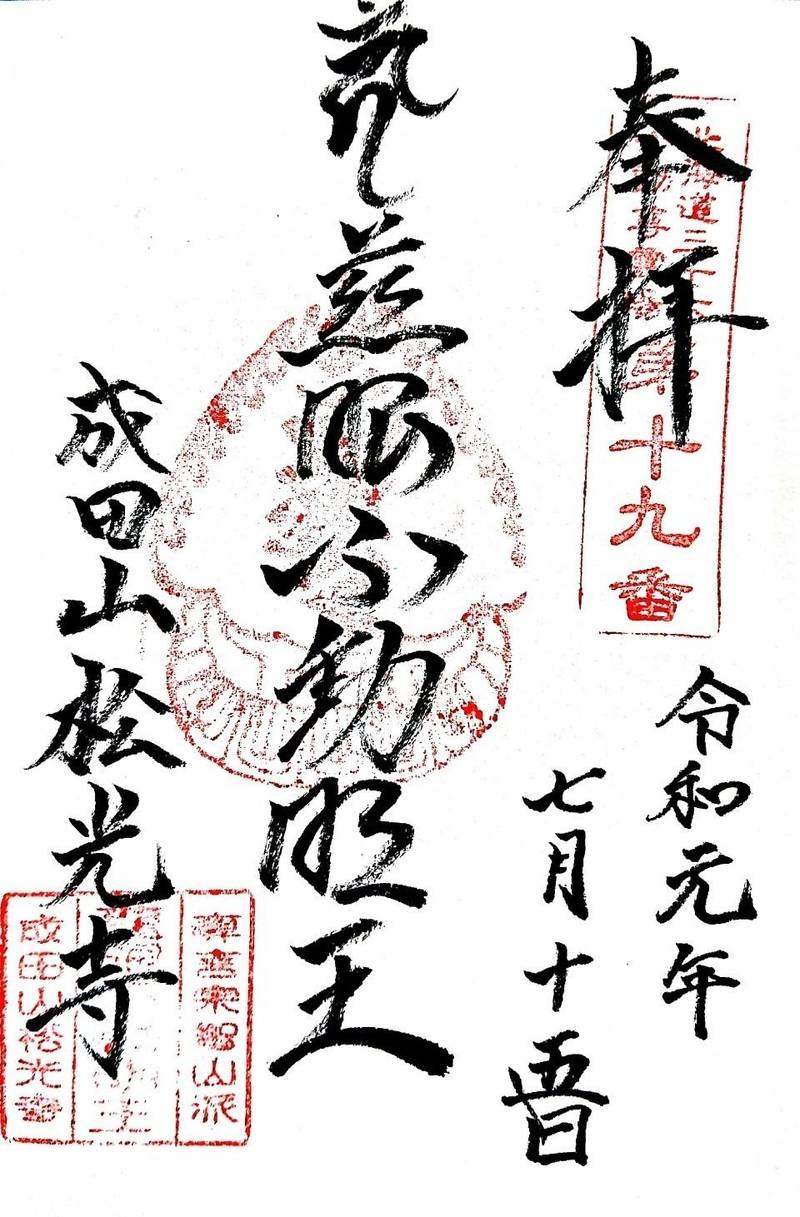 奉拝
北海道三十六
十九番
令和元年
七月十五日
慈眼不動明王
成田山松光寺
真言宗智山派
成田山松光寺